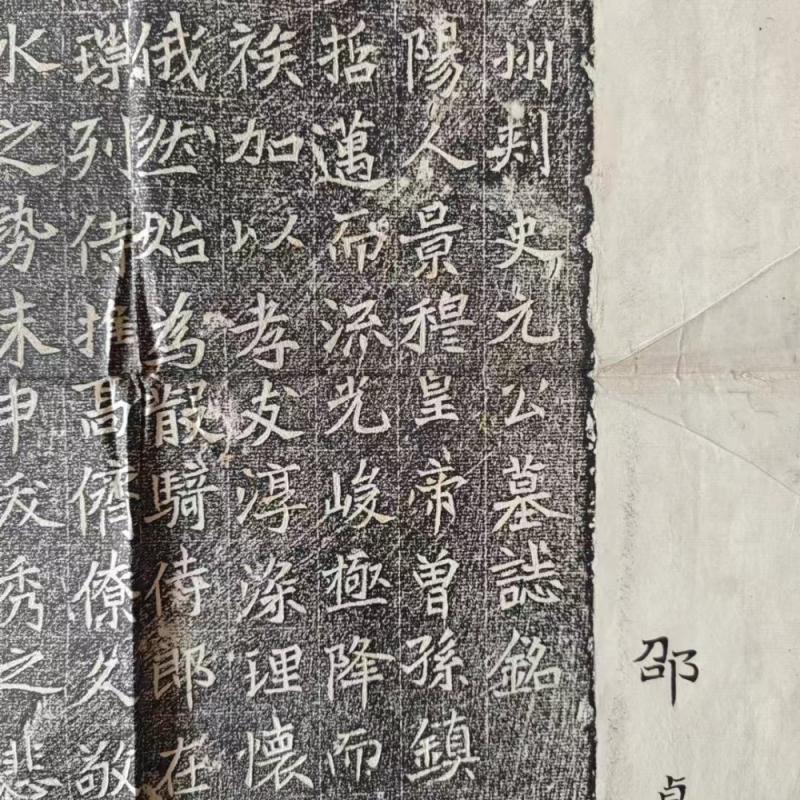 邵
州刺史元公墓誌銘
陽人景穆皇帝曾孫鎮
哲邁而流光峻極降而
族加以孝友淳深理懷
俄然始為散騎侍郎在
璨列侍推高儕僚久敬
水之勢未申秀之悲